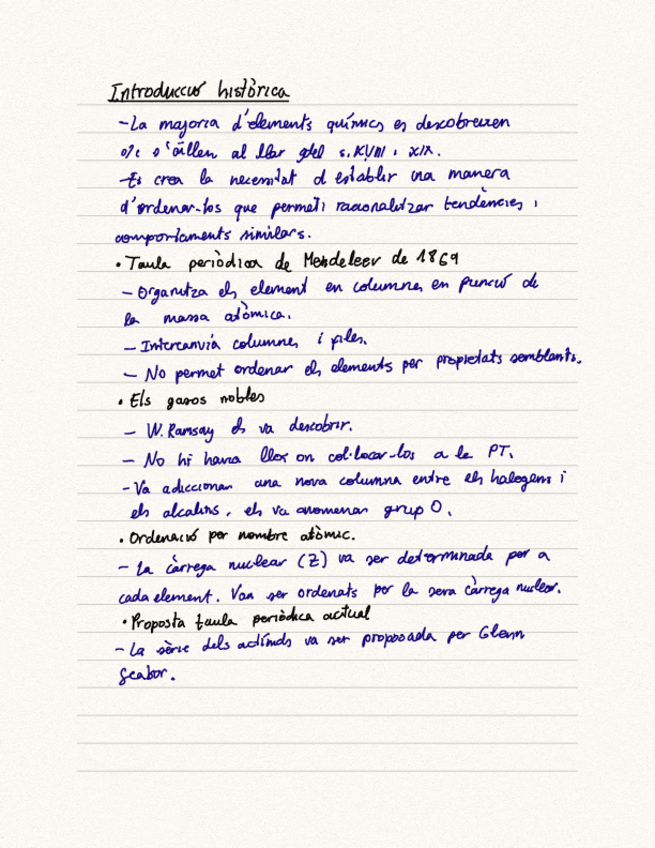 Introducció històrica
-La majoria d'elements químics es descobreixen
o/i s'aïllen al llar gdel s. XVIII i XIX.
-Es crea la necesitat d establir una manera
d'ordenar-los que permeti racionalitzar tendències i
comportaments similars.
• Taula periòdica de Mendeleev de 1869
- Organitza els element en columnes en funció de
la massa atòmica.
- Intercanvia columnes i files.
- No permet ordenar els elements per propietats semblants.
• Els gasos nobles
- W. Ramsay els va descobrir.
- No hi havia lloc on col·locar-los a la PT.
- Va adiccionar una nova columna entre els halogens i
els alcalins, els va anomenar grup 0.
• Ordenació por nombre atòmic.
- La càrrega nuclear (Z) va ser determinada per a
cada element. Van ser ordenats per la seva càrrega nuclear.
• Proposta taula periòdica actual
- La sèrie dels actínids va ser proposada per Glenn
Seabor.